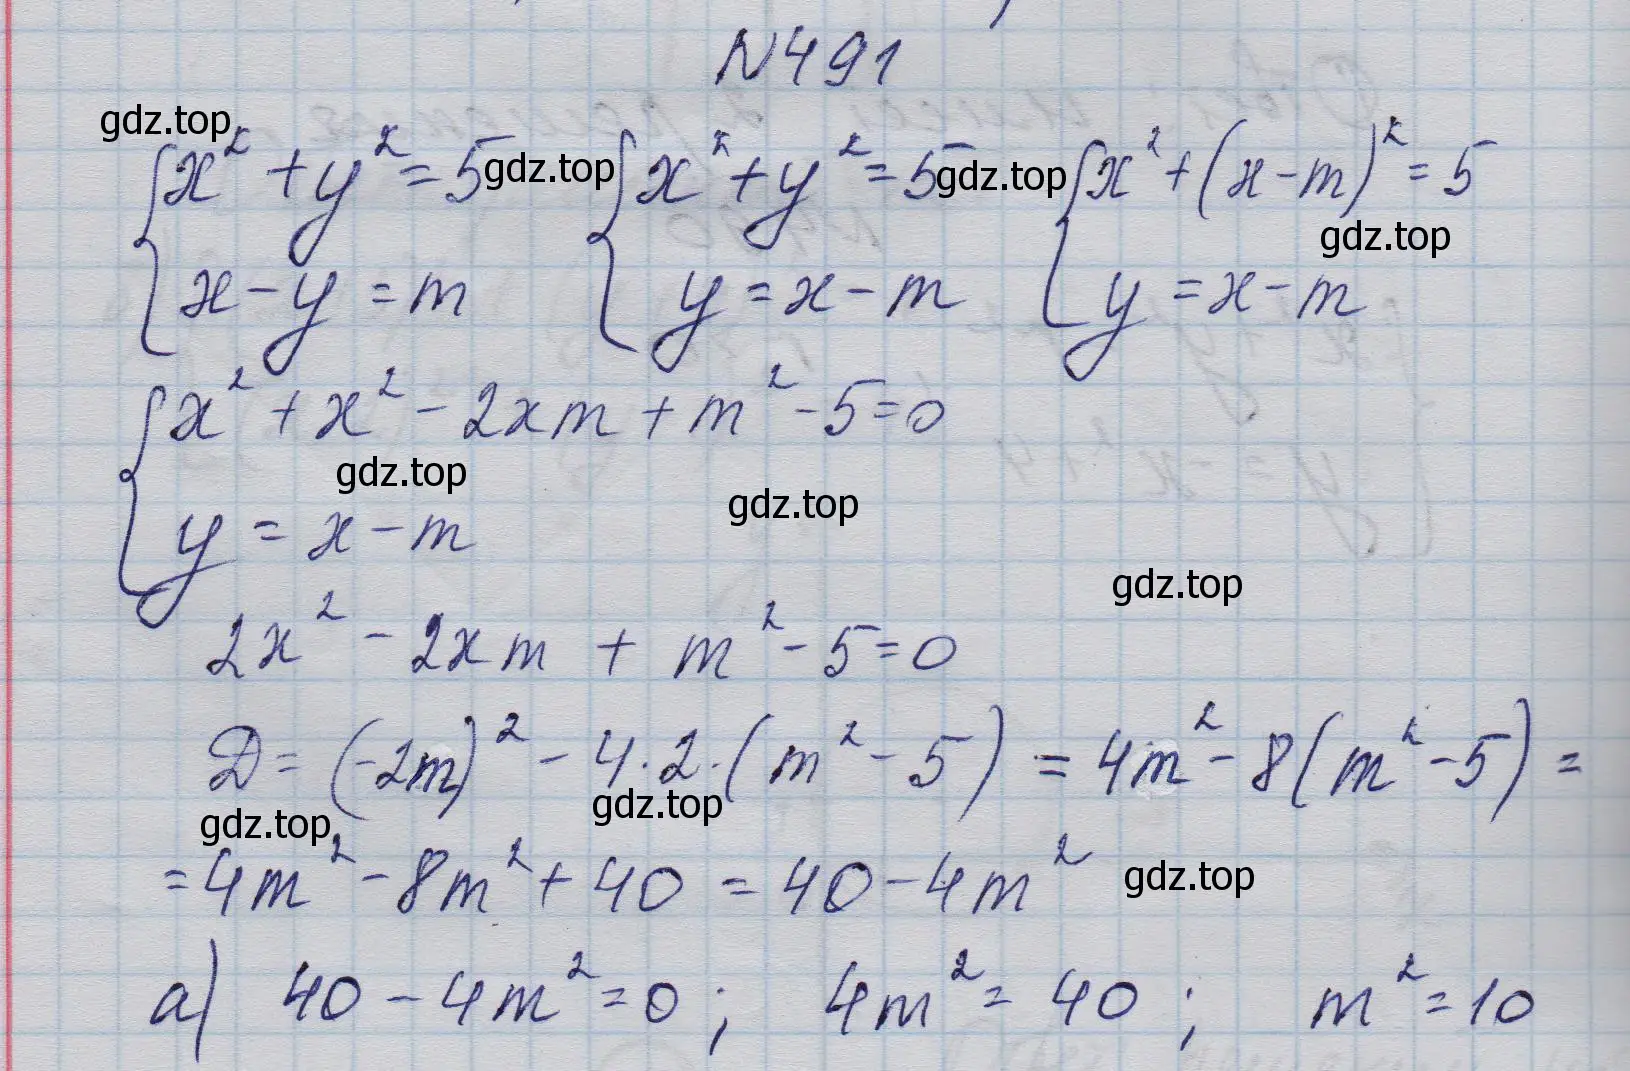 N491
gdz.top
{ x² + y² = 5 gdz.top { x² + y² = 5 gdz.top { x² + (x - m)² = 5
gdz.top
x - y = m y = x - m y = x - m
{ x² + x² - 2xm + m² - 5 = 0
gdz.top gdz.top
y = x - m
gdz.top
2x² - 2xm + m² - 5 = 0
Д = (-2m)² - 4·2·(m² - 5) = 4m² - 8(m² - 5) =
gdz.top gdz.top
= 4m² - 8m² + 40 = 40 - 4m² gdz.top
а) 40 - 4m² = 0; 4m² = 40; m² = 10